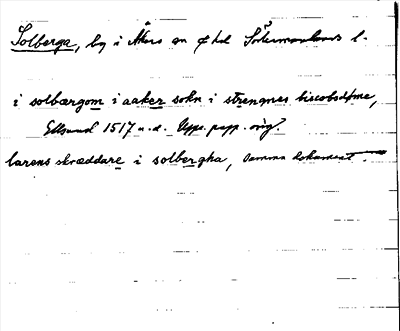 Solberga, by i Åkers sn o hd Södermanlands l.
i solbærgom i aaker sokn i strengnes biscobsdøme,
1517 u.d. Upps. papp. orig.
larens skræddare i solbergha, samma dokument.